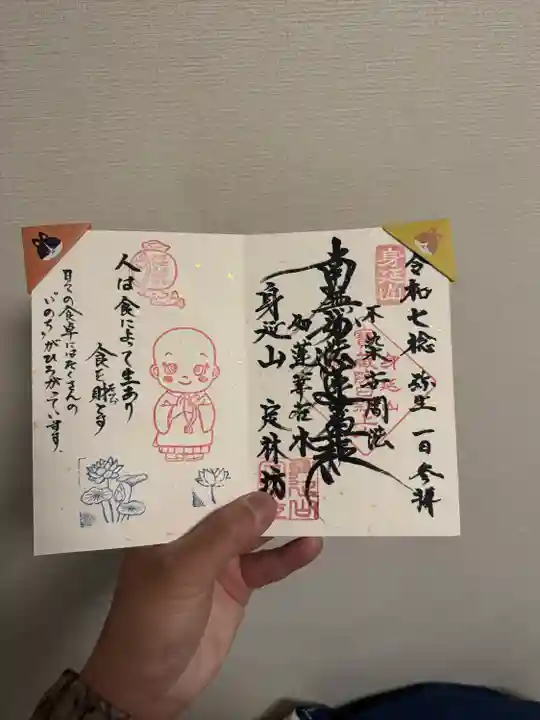 身延山
令和七稔 弥生 一日 参拝
不染世間法
南無妙法蓮華経
如蓮華在水
身延山 定林坊
人は食によって生あり
食を財とす
日々の食卓にはたくさんの
"いのち"がひろがっています。